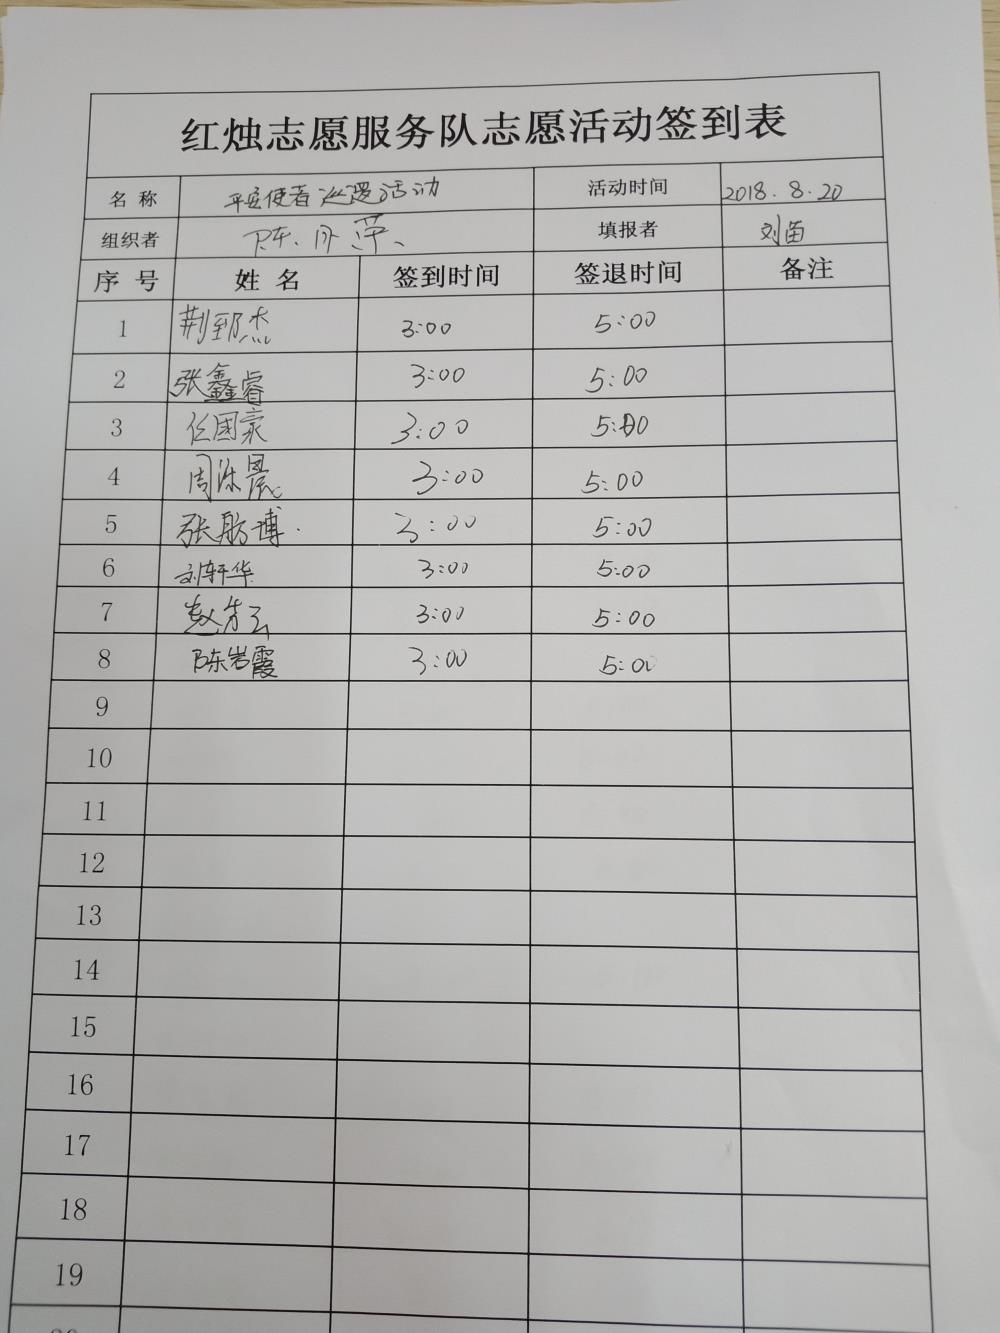 红烛志愿服务队志愿活动签到表
名 称 平安使者巡逻活动 活动时间 2018.8.20
组织者 陈丹萍 填报者 刘苗
序 号 姓 名 签到时间 签退时间 备注
1 荆郅杰 3:00 5:00
2 张鑫睿 3:00 5:00
3 任国豪 3:00 5:00
4 周 晨 3:00 5:00
5 张 博 3:00 5:00
6 刘轩华 3:00 5:00
7 赵 云 3:00 5:00
8 陈岩霞 3:00 5:00
9
10
11
12
13
14
15
16
17
18
19